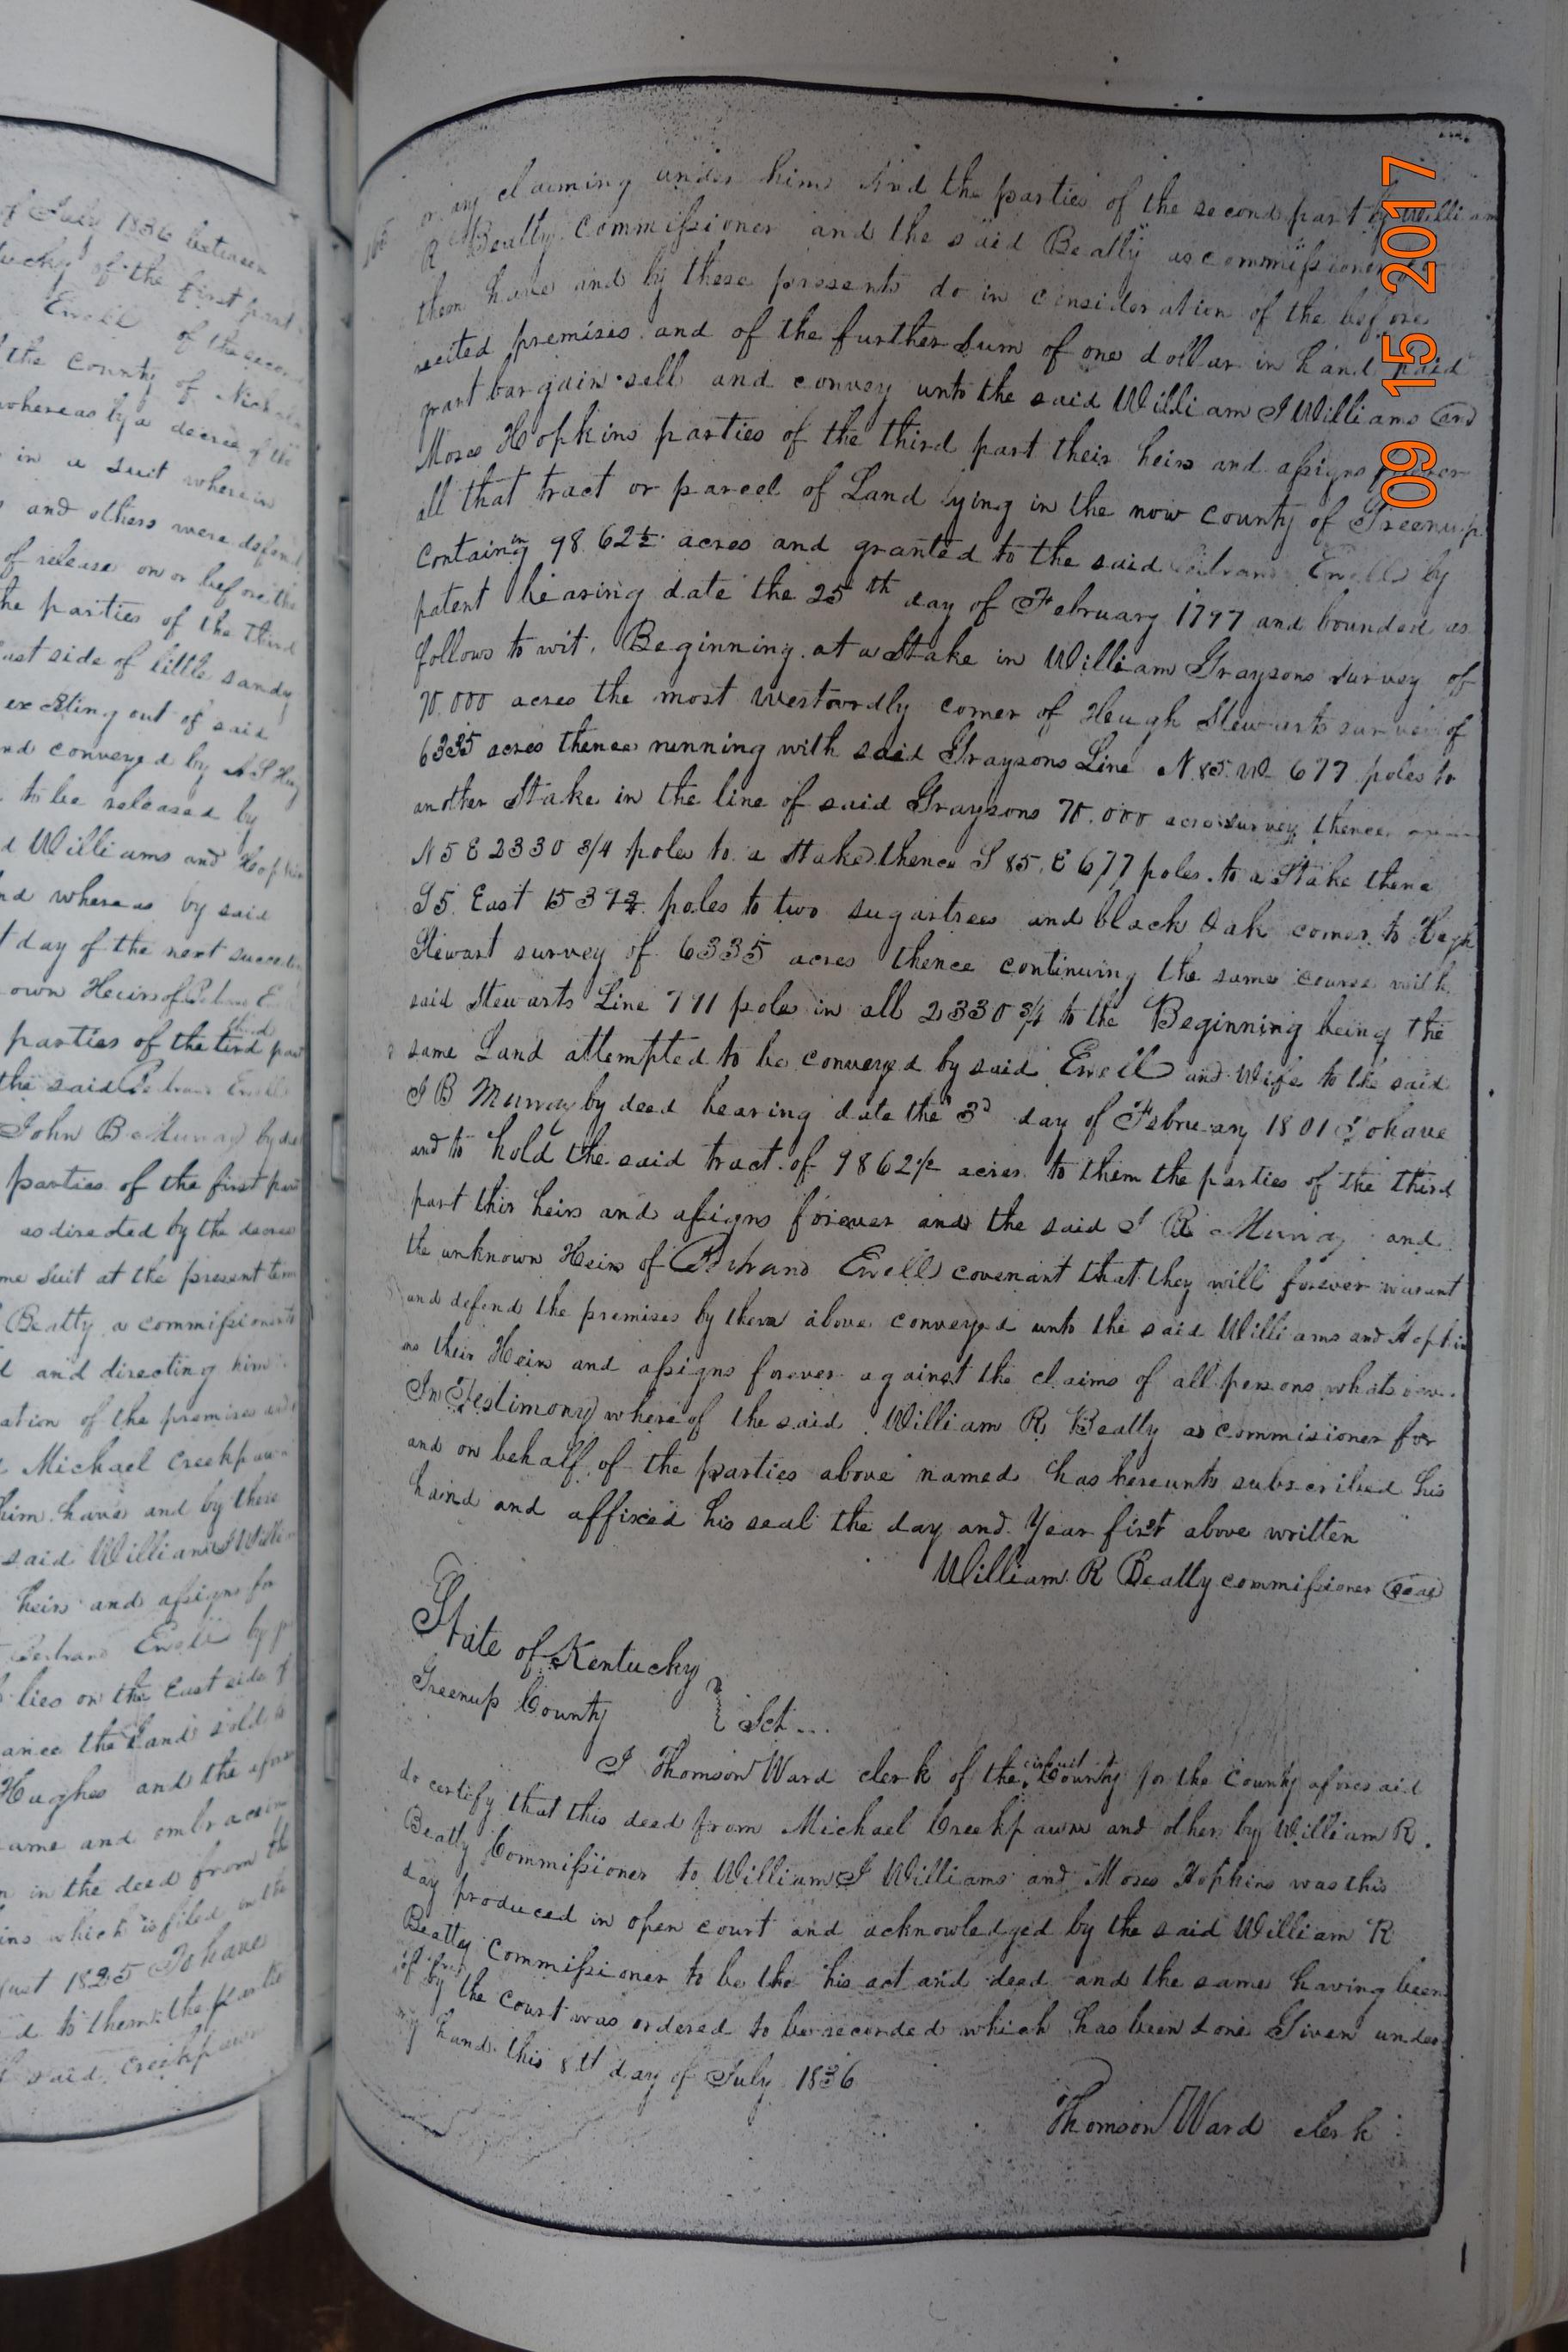 of July 1836 between
of the first part
Ewell of the second
the County of Nichola
whereas by a decree of the
in a suit wherein
and others were defend
of release on or before the
the parties of the third
East side of little sandy
existing out of said
and conveyed by
to be released by
d Williams and Hopkin
nd whereas by said
t day of the next succee
own Heirs of
parties of the third part
the said Ewell
John B Murray by de
parties of the first part
as directed by the decree
me suit at the present term
Beatty a commissioner
d and directing him
ation of the premises and
Michael Creekpaum
him have and by these
said William J Willi
heirs and assigns for
Bertrand Ewell by p
lies on the East side of
ance the Land sold
Hughes and the afore
ame and embracin
n in the deed from the
ins which is filed in the
ust 1825 To have
d to them the partie
said Creekpaum
or any claiming under him And the parties of the second part by William
R Beatty Commissioner and the said Beatty as commissioner
them have and by these presents do in consideration of the before
recited premises and of the further Sum of one dollar in hand paid
grant bargain sell and convey unto the said William J Williams and
Moses Hopkins parties of the third part their heirs and assigns forever
all that tract or parcel of Land lying in the now county of Greenup
containing 98.62½ acres and granted to the said Bertrand Ewell by
patent bearing date the 25th day of February 1797 and bounded as
follows to wit. Beginning at a Stake in William Graysons survey of
70.000 acres the most westwardly corner of Heugh Stewarts survey of
6335 acres thence running with said Graysons Line N.85.W 677 poles to
another Stake in the line of said Graysons 70.000 acre survey thence
N 5 E 2330 3/4 poles to a stake thence S 85. E 677 poles to a Stake thence
S 5. East 1539¾ poles to two sugartrees and black Oak corner to Hugh
Stewart survey of 6335 acres thence continuing the same course with
said Stewarts Line 791 poles in all 2330 3/4 to the Beginning being the
same Land attempted to be conveyed by said Ewell and Wife to the said
J B Murray by deed bearing date the 3d day of February 1801 To have
and to hold the said tract of 9862½ acres to them the parties of the third
part thir heirs and assigns forever and the said J B Murray and
the unknown Heirs of Bertrand Ewell covenant that they will forever warant
and defend the premises by them above conveyed unto the said Williams and Hopkin
ns their Heirs and assigns forever against the claims of all persons whatsoever.
In Testimony where of the said William R Beatty as commisioner for
and on behalf of the parties above named has hereunto subscribed his
hand and affixed his seal the day and Year first above written
William R Beatty commissioner Seal
State of Kentucky
Greenup County } Sct...
I Thomson Ward clerk of the circuit County for the County aforesaid
do certify that this deed from Michael Creekpaum and others by William R.
Beatty Commissioner to William J Williams and Moses Hopkins was this
day produced in open court and acknowledged by the said William R
Beatty Commissioner to be the his act and deed and the same having been
by the court was ordered to be recorded which has been done Given under
my hand this 8th day of July 1836
Thomson Ward clerk
09 15 2017